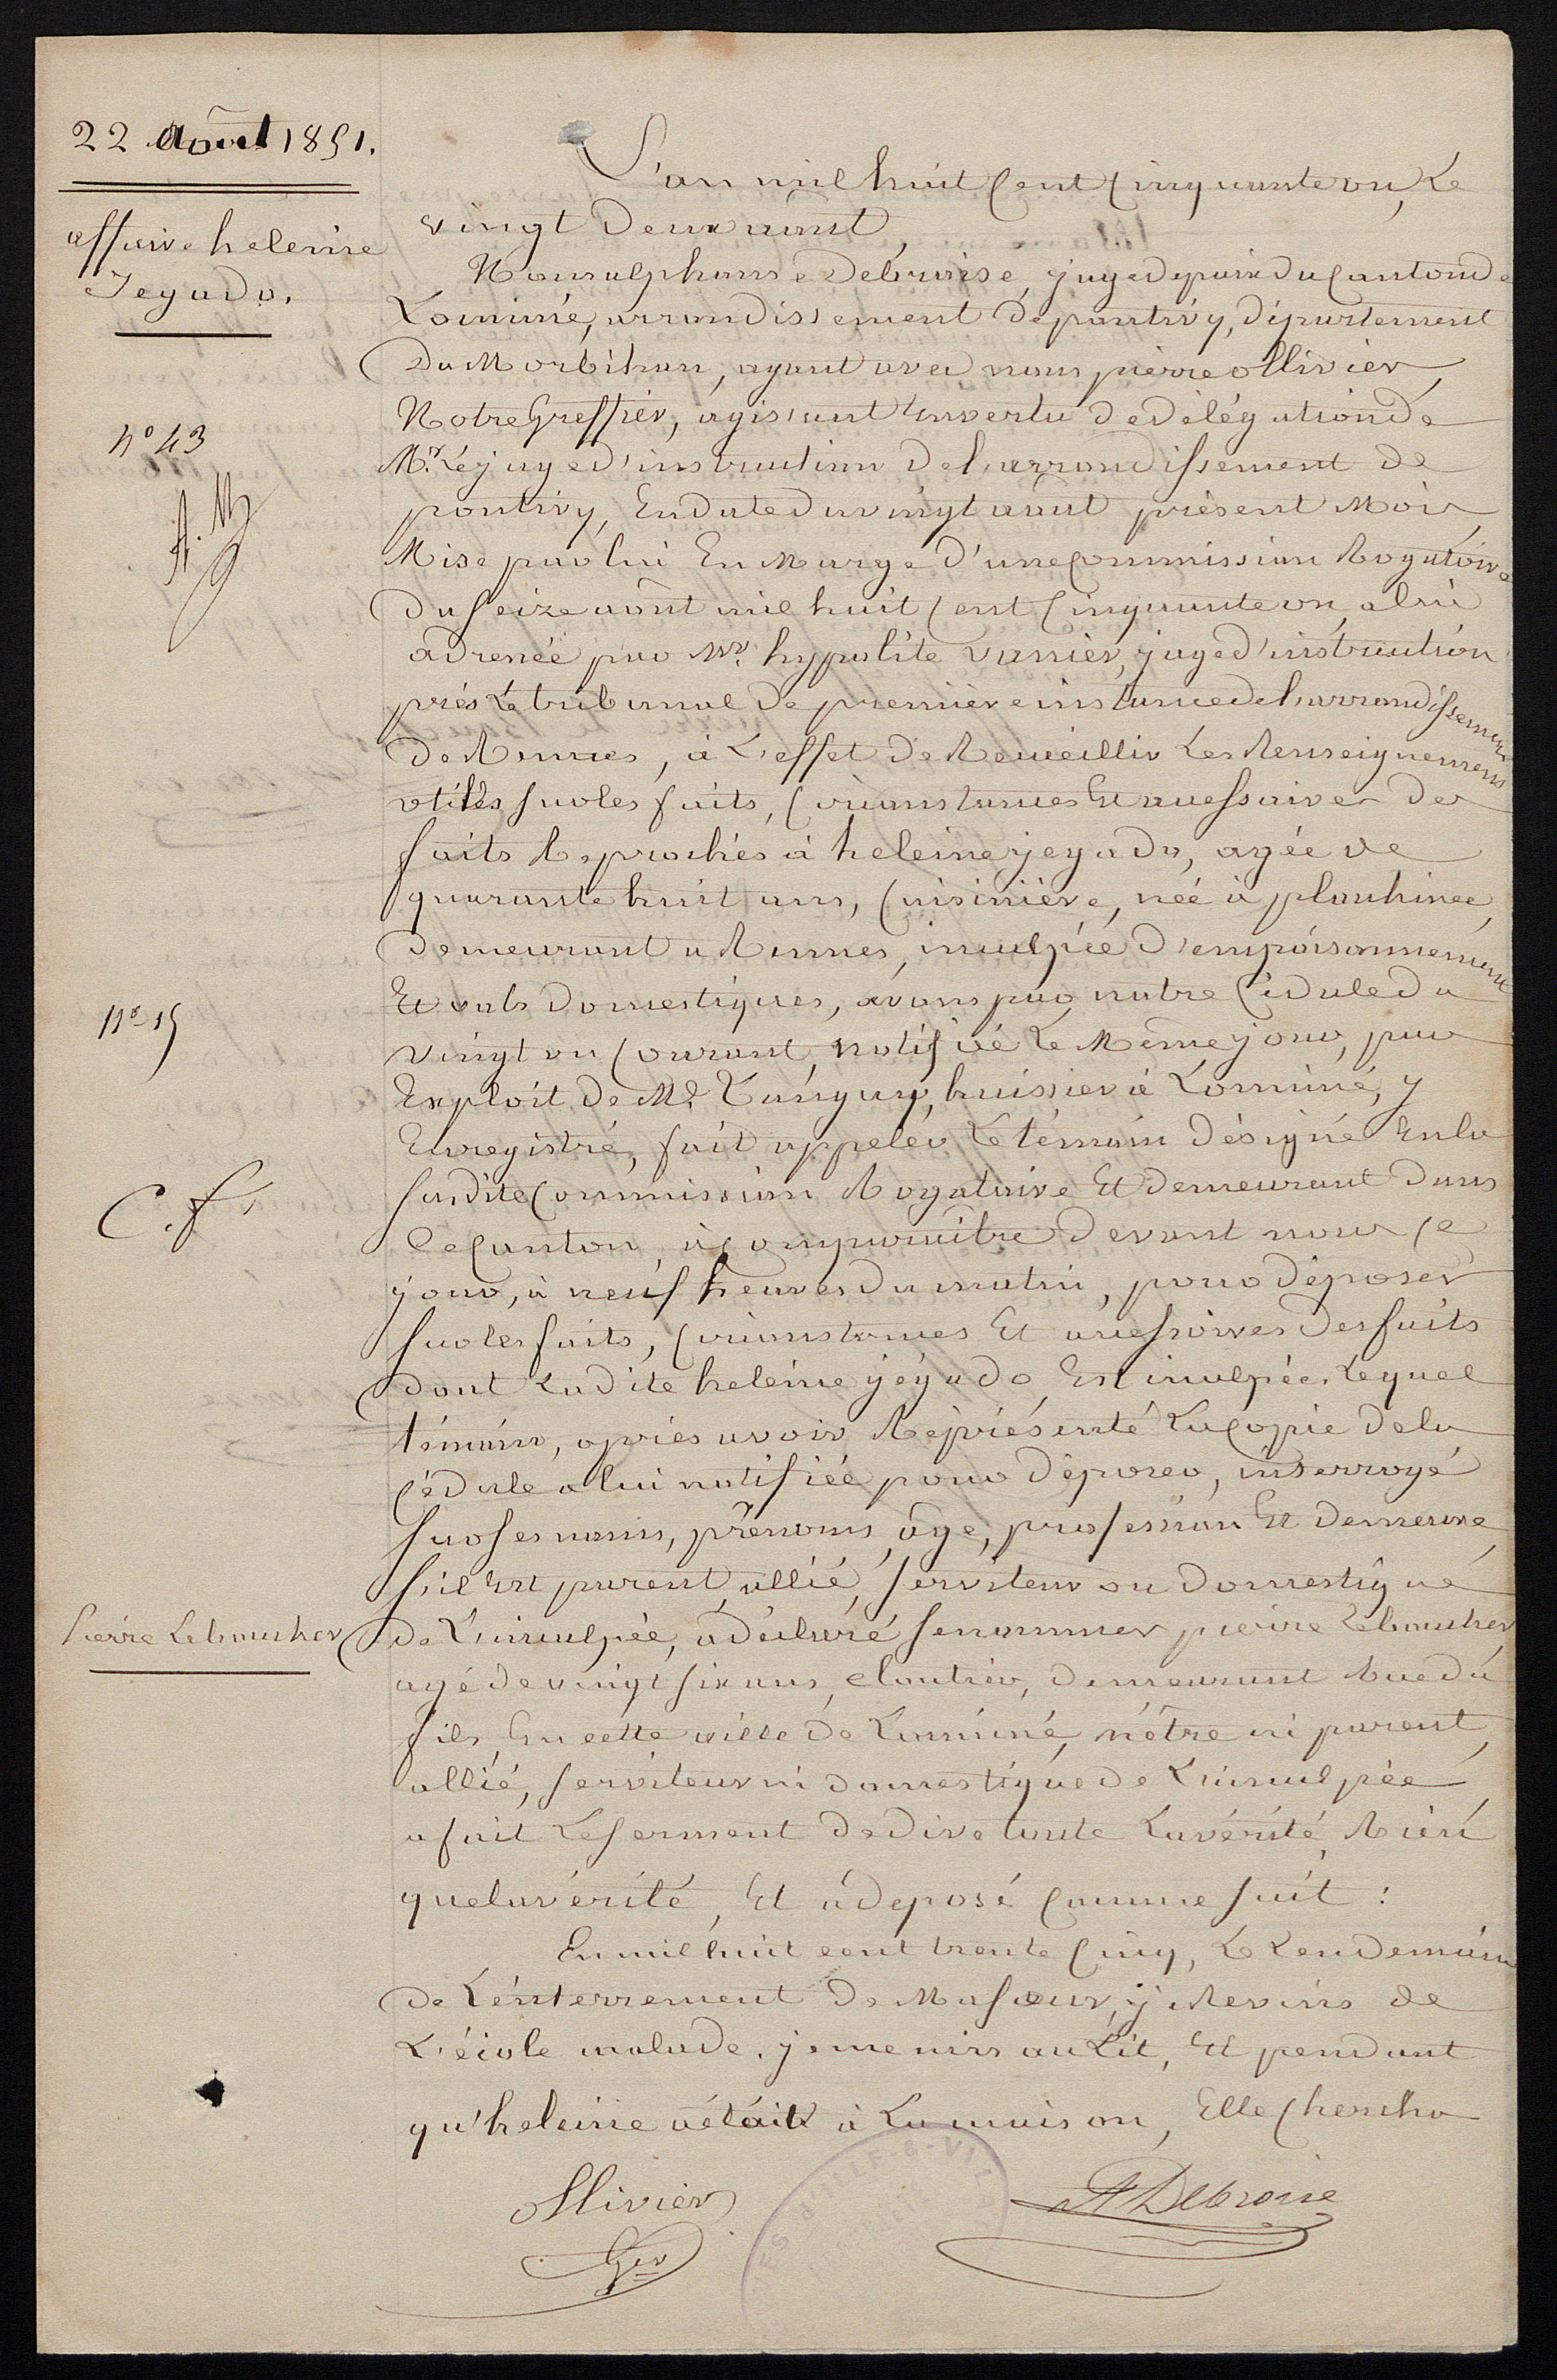 22 Août 1851.
affaire heleine
Jegado.
n° 43
n° 15
C. f.
Pierre Leboucher
L'an mil huit Cent Cinquante un, Le
vingt Deux aout,
Nous alphonse Debroise, juge de paix du Canton de
Lominé, arrondissement de pontivy, département
Du Morbihan, ayant avec nous pierre ollivier
Notre Greffier, agissant En vertu De délégation de
Mr. Le juge d'instruction De l'arrondissement de
pontivy, En date du vingt août présent Mois
Mise par lui En Marge D'une Commission Rogatoire
Du seize août mil huit Cent Cinquante un, a lui
adressée par Mr. hypolite vannier, juge d'instruction
près Le tribunal De première instance de l'arrondissement
De Rennes, à L'effet De Recueillir Les Renseignemens
utiles sur les faits, Circonstances Et accessoires des
faits Reprochés à heleine jegado, agée de
quarante huit ans, Cuisinière, née à plouhinec,
Demeurant a Rennes, inculpée D'empoisonnement
Et vols Domestiques, avons par notre Cédule du
vingt un Courant, notifiée Le Même jour, par
Exploit De Me. Tanguy, huissier à Lominé, y
Enregistré, fait appeler Le témoin Désigné En la
susdite Commission Rogatoire Et Demeurant Dans
Ce Canton, à Comparaître Devant nous Ce
jour, à neuf heures Du matin, pour Déposer
sur les faits, Circonstances Et accessoires Des faits
Dont Ladite heleine jégado Est inculpée. Lequel
témoin, après avoir Représenté La Copie De la
Cédule a lui notifiée pour Déposer, interrogé
sur ses noms, prénoms, âge, profession Et Demeure,
s'il Est parent, allié, serviteur ou Domestique
De L'inculpée, a déclaré se nommer pierre Leboucher
agé de vingt six ans, cloutier, Demeurant Rue du
fil, En cette ville De Lominé, n'être ni parent,
allié, serviteur ni Domestique De L'inculpée
a fait Le serment De Dire toute La vérité, Rien
que la vérité, Et a déposé Comme suit :
En mil huit cent trente Cinq, Le Lendemain
De L'enterrement De Ma sœur, je Revins De
L'école malade. je me mis au Lit, Et pendant
qu'heleine était à La maison, Elle Chercha
Ollivier
Gier
A Debroise